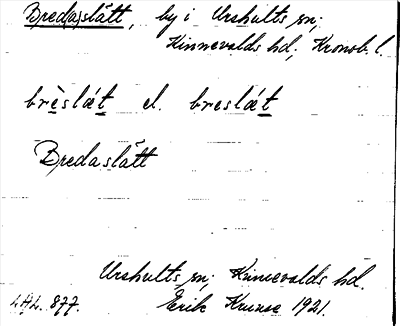 Bredaslätt, by i Urshults sn;
Kinnevalds hd, Kronob. l.
brèslæt el. breslæt
Bredaslätt
Urshults sn; Kinnevalds hd.
LAL. 877. Erik Kruuse 1921.